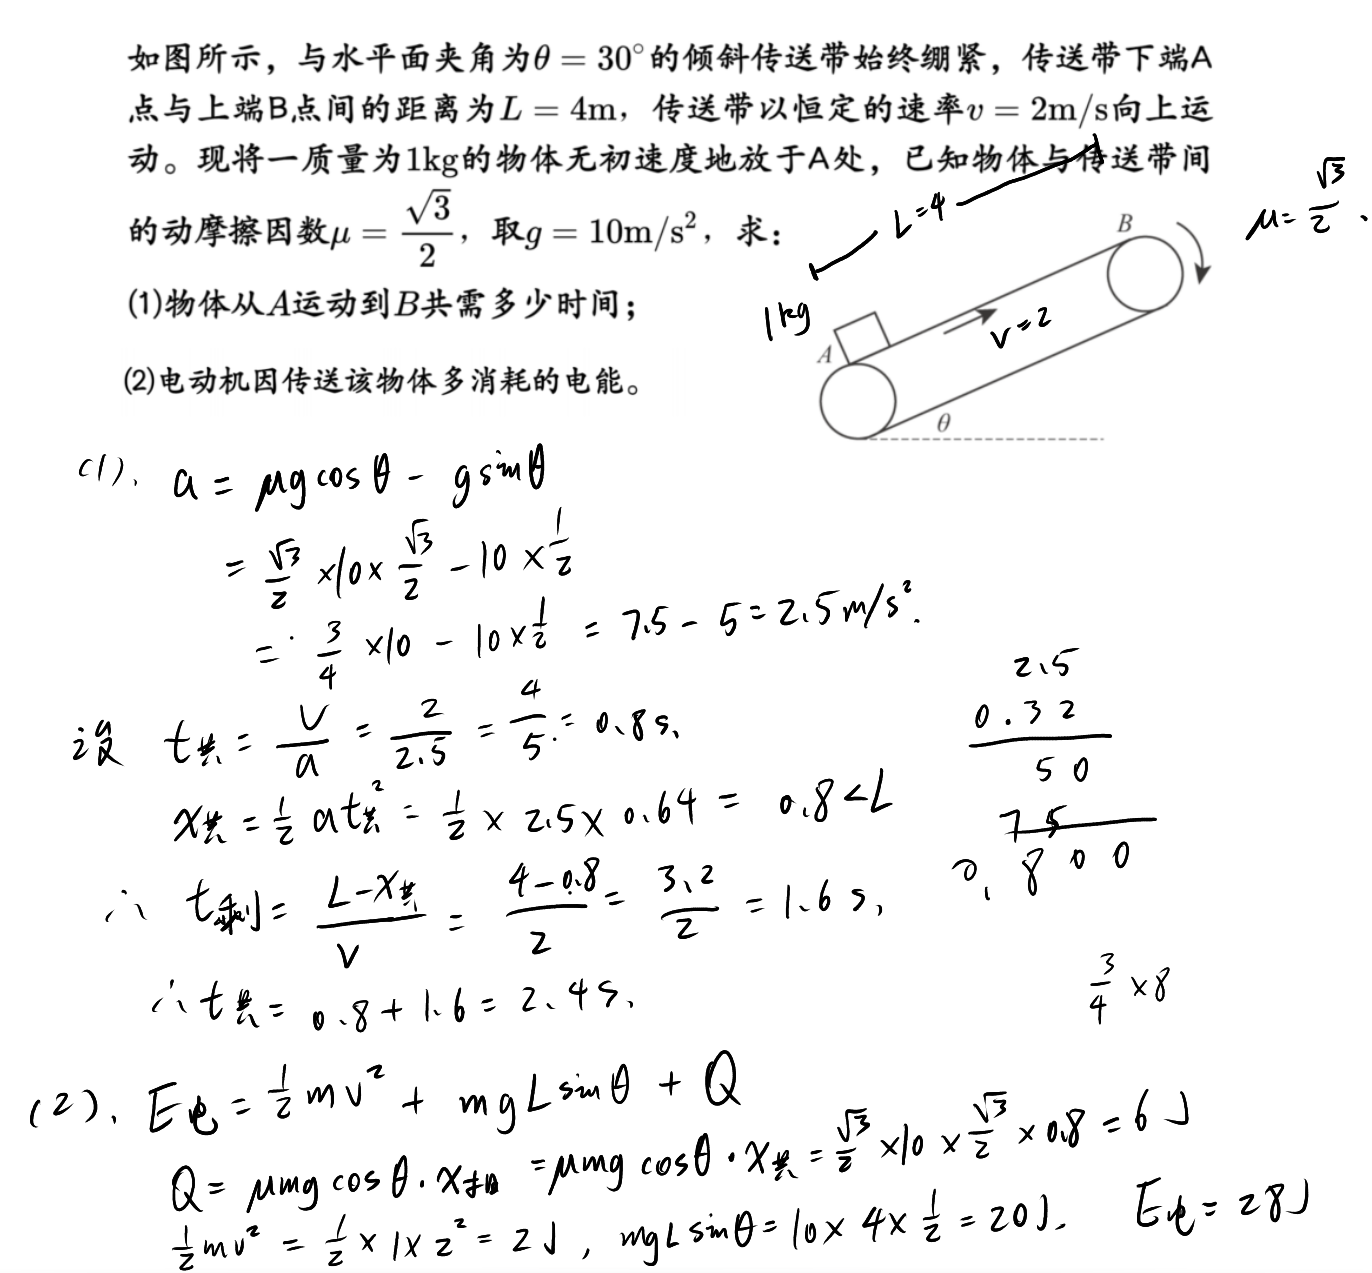 如图所示，与水平面夹角为θ = 30°的倾斜传送带始终绷紧，传送带下端A
点与上端B点间的距离为L = 4m，传送带以恒定的速率v = 2m/s向上运
动。现将一质量为1kg的物体无初速度地放于A处，已知物体与传送带间
的动摩擦因数μ = √3/2，取g = 10m/s²，求：
μ = √3/2.
L=4
B
(1)物体从A运动到B共需多少时间；
1kg
v=2
A
(2)电动机因传送该物体多消耗的电能。
θ
(1). a = μg cosθ - g sinθ
= √3/2 ×10× √3/2 - 10 × 1/2
= 3/4 ×10 - 10×1/2 = 7.5 - 5 = 2.5 m/s².
2.5
0.32
50
75
0.800
设 t共 = v/a = 2/2.5 = 4/5 = 0.8s.
x共 = 1/2 at共² = 1/2 × 2.5 × 0.64 = 0.8 < L
∴ t剩 = (L-x共)/v = (4-0.8)/2 = 3.2/2 = 1.6 s.
∴ t总 = 0.8 + 1.6 = 2.4s.
3/4 ×8
(2). E电 = 1/2 mv² + mgL sinθ + Q
Q = μmg cosθ · x相 = μmg cosθ · x共 = √3/2 ×10 × √3/2 × 0.8 = 6J
1/2 mv² = 1/2 × 1 × 2² = 2J, mgL sinθ = 10 × 4 × 1/2 = 20J. E电 = 28J